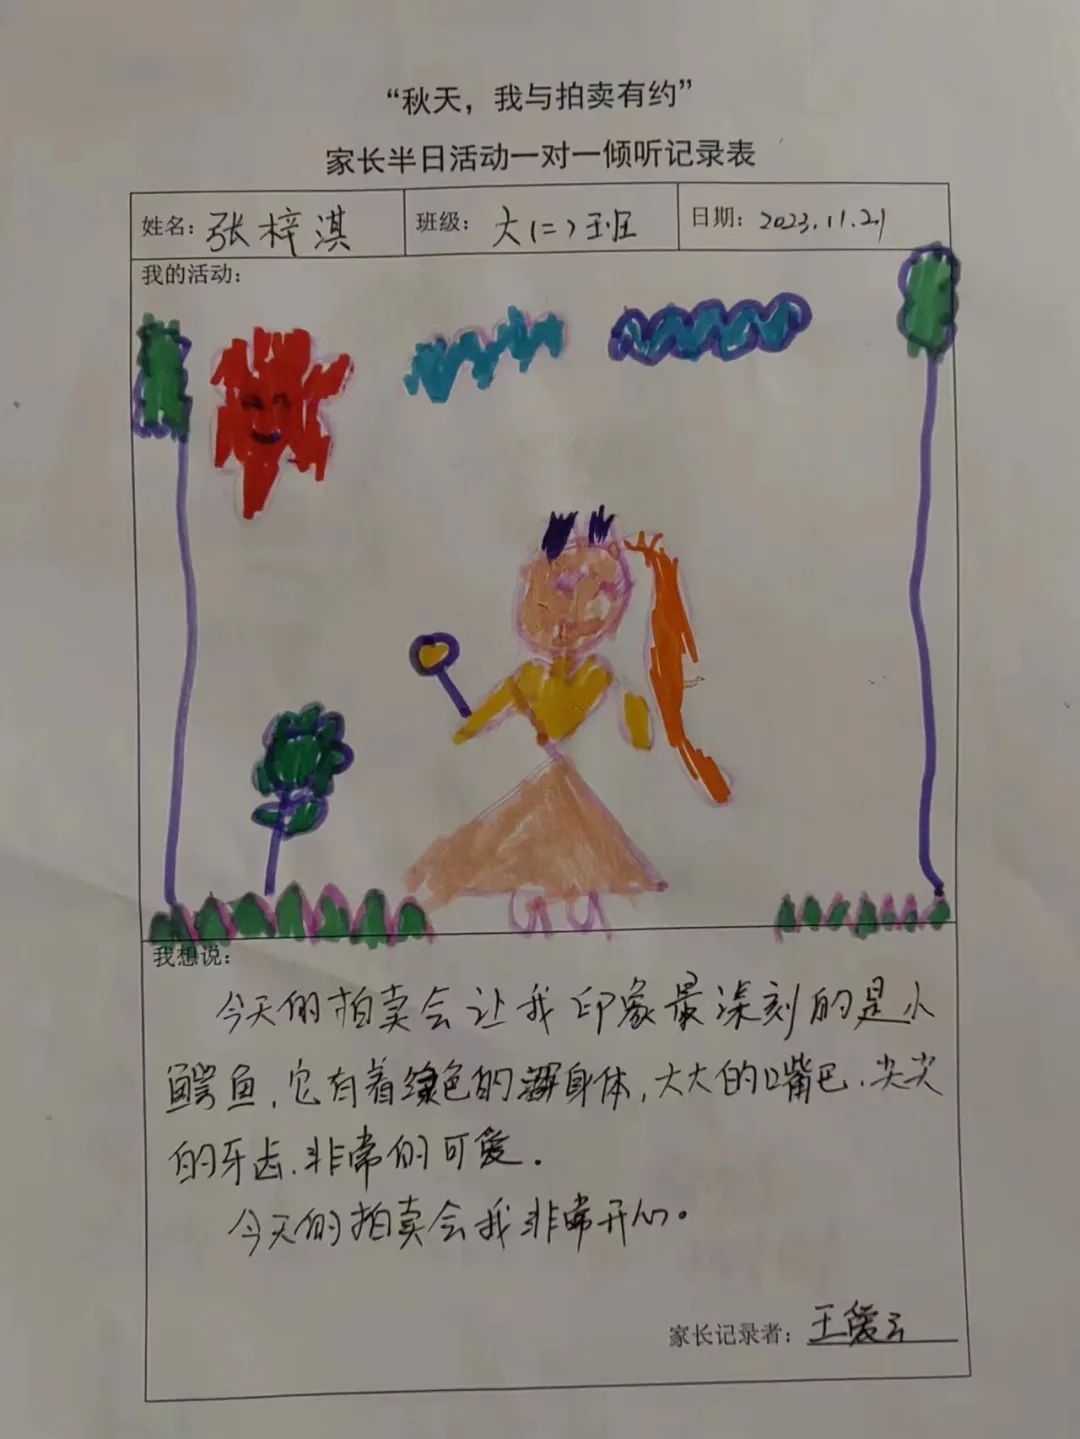 “秋天，我与拍卖有约”
家长半日活动一对一倾听记录表
姓名：张梓淇 班级：大(二)班 日期：2023.11.21
我的活动：
我想说：
今天的拍卖会让我印象最深刻的是小
鳄鱼，它有着绿色的身体，大大的嘴巴、尖尖
的牙齿、非常的可爱。
今天的拍卖会我非常开心。
家长记录者：王爱云